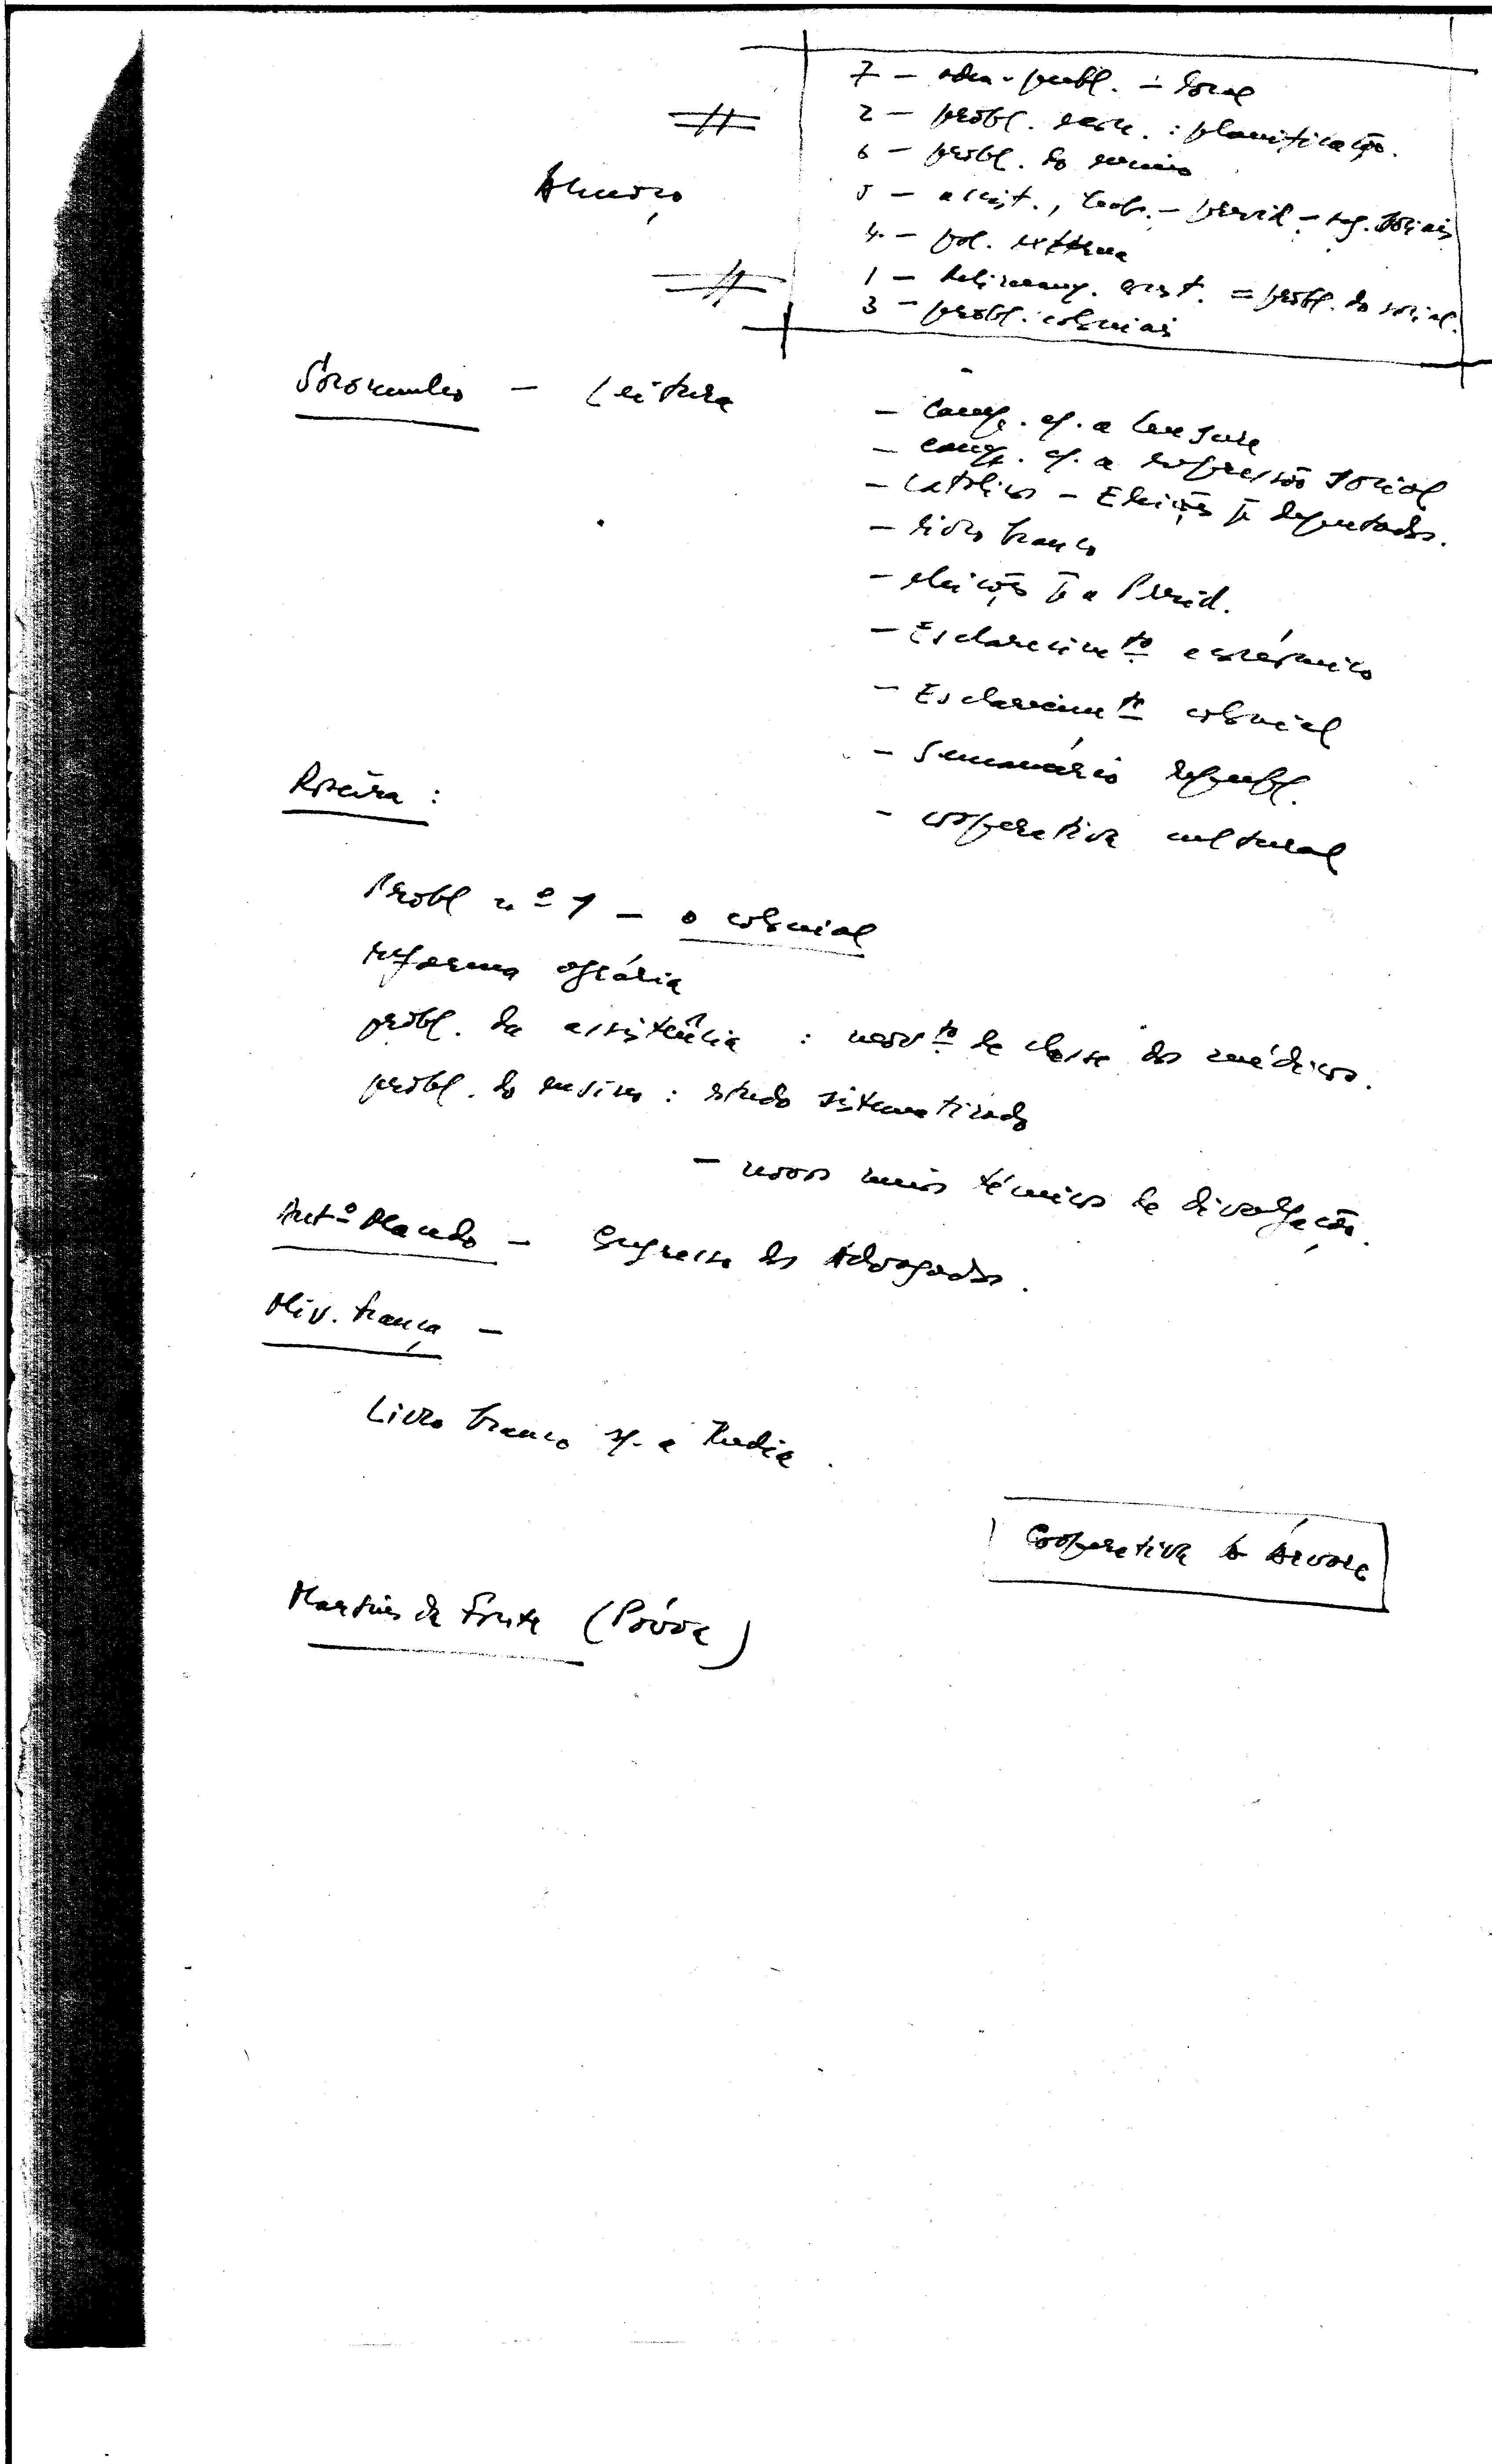 7 - adm. publ. - local
2 - probl. econ. : planificação.
6 - probl. do ensino
5 - assist., trab. - previd. - seg. sociais
4 - pol. externa
1 - const. = probl. do social.
3 - probl. coloniais
Almoço
- Leitura
- camp. c/. a censura
- camp. c/. a repressão social
- católicos - Eleições pª deputados.
- livro branco
- eleições pª a Presid.
- Esclarecimtº económico
- Esclarecimtº colonial
- Semanário republ.
- cooperativa cultural
:
Probl nº 1 - o colonial
reforma agrária
probl. da assistência : movtº de classe dos médicos.
probl. do ensino : estudo sistematizado
- novos meios técnicos de divulgação.
Antº Macedo - Congresso dos Advogados.
Oliv. França -
Livro branco s/. a India.
Cooperativa A Árvore
Martins da Fonte (Póvoa)